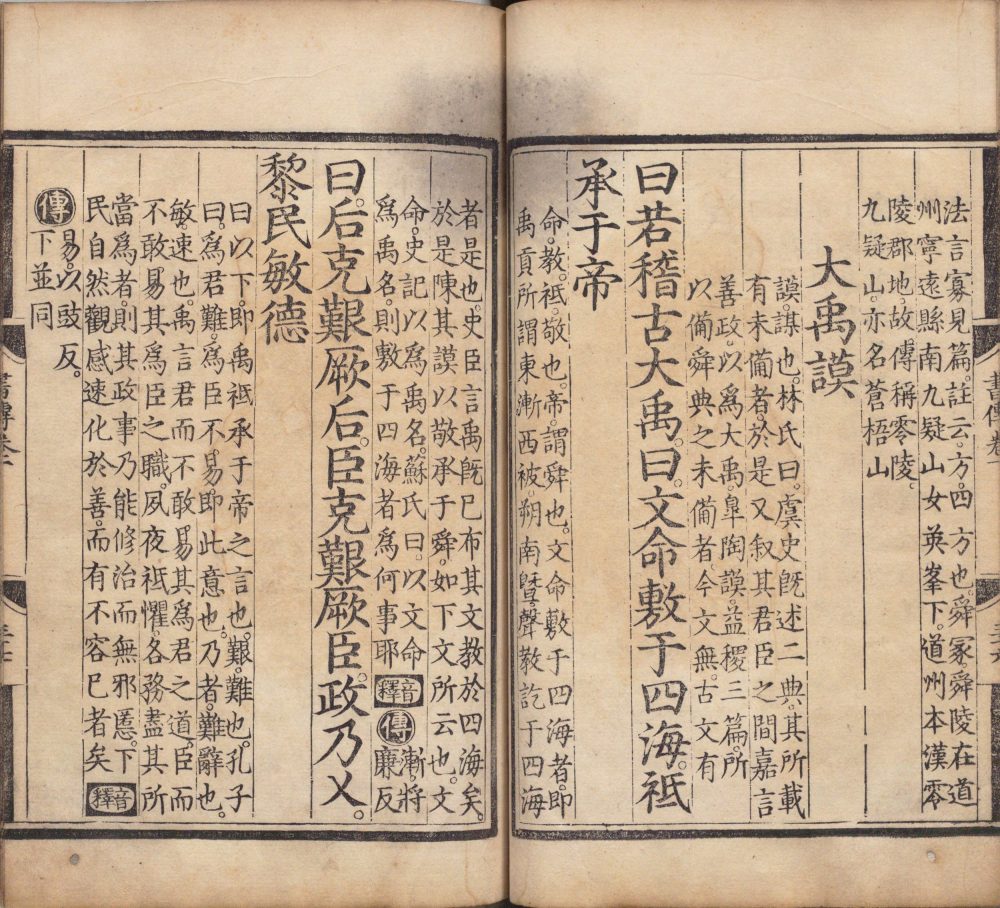 法言寡見篇。註云。方。四方也。舜冢舜陵在道
州寧遠縣南九疑山女英峯下。道州本漢零
陵郡地。故傳稱零陵。
九疑山。亦名蒼梧山
大禹謨
謨。謀也。林氏曰。虞史旣述二典。其所載
有未備者。於是又叙其君臣之間嘉言
善政。以爲大禹。皐陶謨。益稷三篇。所
以備舜典之未備者。今文無。古文有
曰若稽古大禹。曰文命敷于四海。祗
承于帝
命。教。祗。敬也。帝。謂舜也。文命敷于四海者。即
禹貢所謂東漸西被朔南曁。聲教訖于四海
者是也。史臣言禹旣已布其文教於四海矣。
於是陳其謨以敬承于舜。如下文所云也。文
命。史記以爲禹名。蘇氏曰。以文命
爲禹名。則敷于四海者爲何事耶
音釋
傳
漸。將
廉反
曰。后克艱厥后。臣克艱厥臣。政乃乂。
黎民敏德
曰以下。即禹祗承于帝之言也。艱。難也。孔子
曰。爲君難。爲臣不易。即此意也。乃者。難辭也。
敏。速也。禹言君而不敢易其爲君之道。臣而
不敢易其爲臣之職。夙夜祗懼。各務盡其所
當爲者。則其政事乃能修治而無邪慝。下
民自然觀感。速化於善。而有不容已者矣
音釋
傳
易。以豉反。
下並同